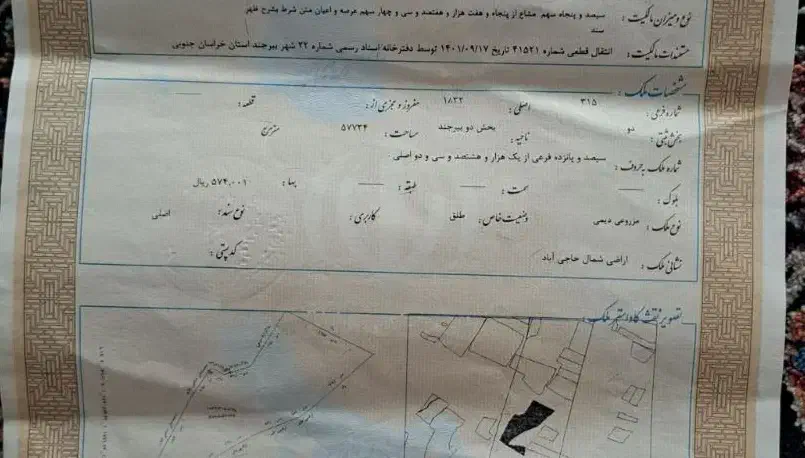 نوع و میزان مالکیت : سیصد و پنجاه سهم مشاع از پنجاه و هفت هزار و هفتصد و سی و چهار سهم عرصه و اعیان متن شرط بشرح ظهر
سند
مستندات مالکیت : انتقال قطعی شماره ۴۱۵۲۱ تاریخ ۱۴۰۱/۰۹/۱۷ توسط دفترخانه اسناد رسمی شماره ۲۲ شهر بیرجند استان خراسان جنوبی
مشخصات ملک :
شماره فرعی : ۳۱۵ اصلی : ۱۸۳۲ مفروز و مجزی از : قطعه :
بخش ثبتی : دو ناحیه : بخش دو بیرجند مساحت : ۵۷۷۳۴ مترمربع
شماره ملک به حروف : سیصد و پانزده فرعی از یک هزار و هشتصد و سی و دو اصلی.
بلوک : سمت : طبقه : بها : ۵۷۴،۰۰۱ ریال
نوع ملک : مزروعی دیمی وضعیت خاص : طلق کاربری : نوع سند : اصلی
نشانی ملک : اراضی شمال حاجی آباد کدپستی :
تصویر نقشه کاداستر ملک :